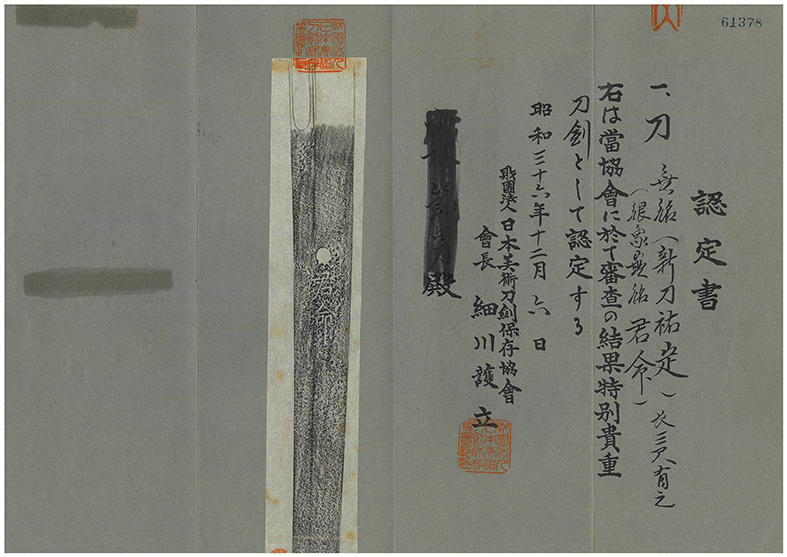 61378
認定書
一、刀 無銘(新刀祐定)長三尺有之
(銀象嵌銘 君命)
右は當協會に於て審査の結果特別貴重
刀劍として認定する
昭和三十六年十二月六日
財團法人日本美術刀劍保存協會
會長 細川護立
殿
君命